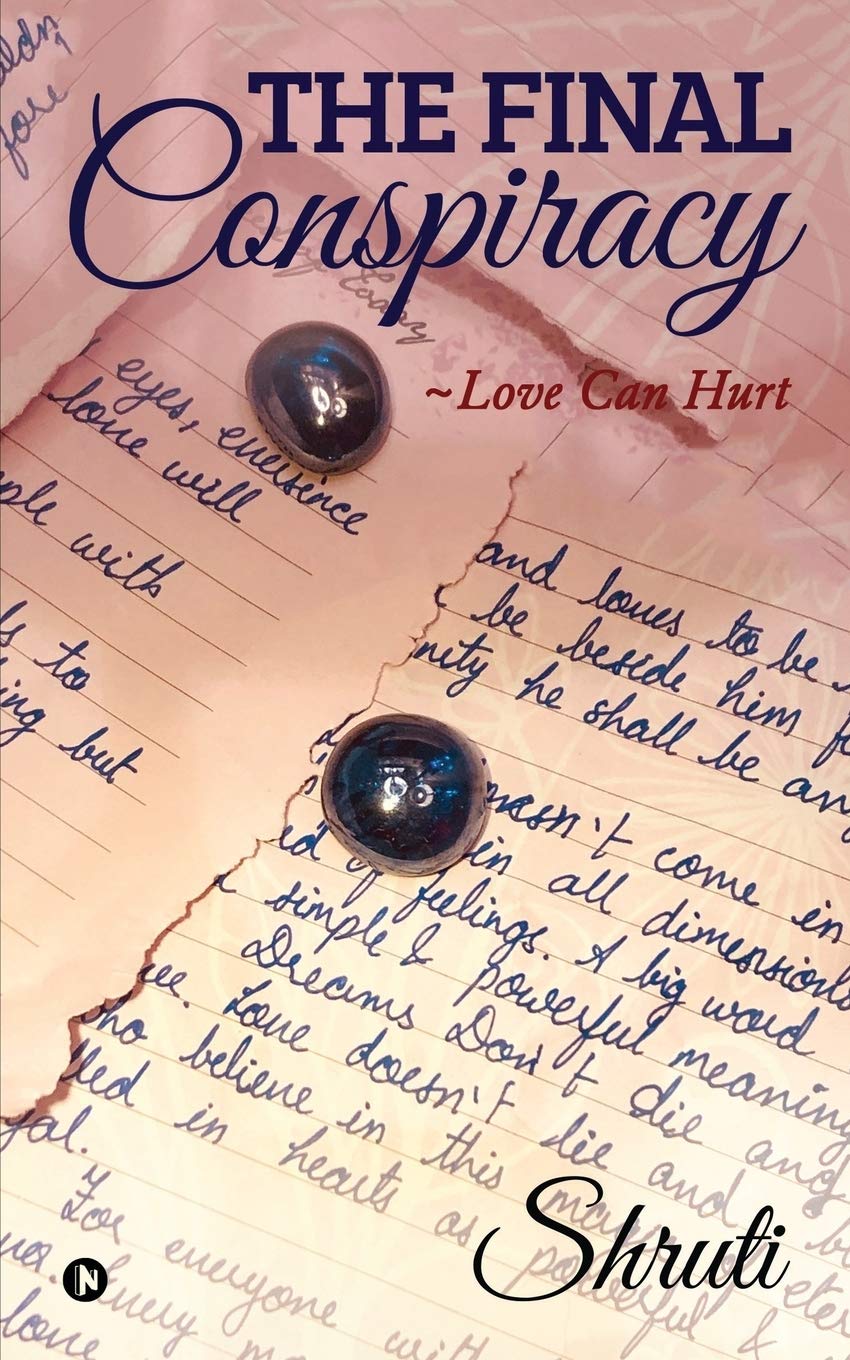 THE FINAL
Conspiracy
~Love Can Hurt
today
eyes,
love will
with
to
ing but
and loves to be
be beside him
nity he shall be
doesn't come in
in all dimensions
ed of feelings. A big word
simple & powerful meaning
Dreams Don't die and
ue. Love doesn't lie and
who believe in this
lled in hearts as powerful &
For everyone
Every
love
Shruti
N